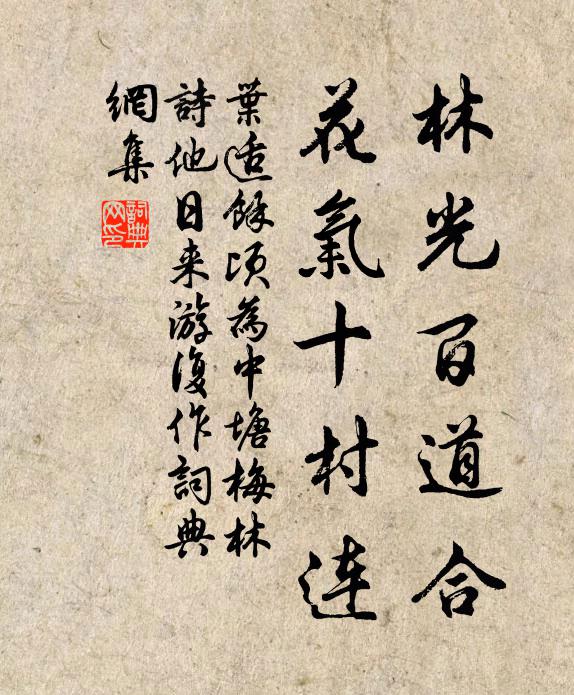 林光百道合
花氣十村連
葉适餘頃為中塘梅林
詩他日来游復作詞典
網集
詞典网印